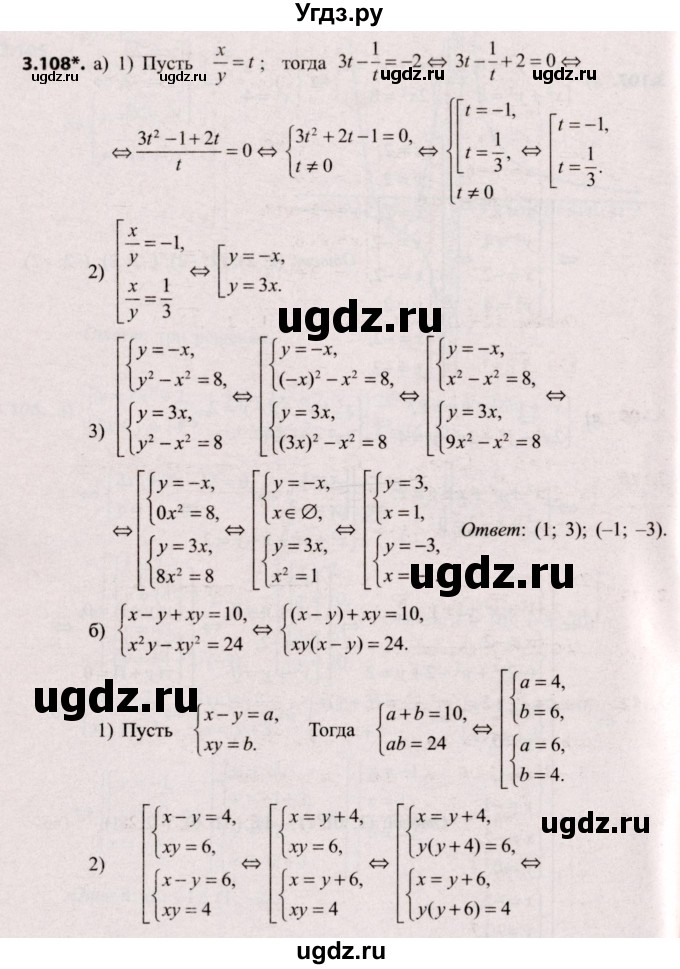 Угдз.ру
3.108*. а) 1) Пусть x/y = t; тогда 3t − 1/t = −2 ⇔ 3t − 1/t + 2 = 0 ⇔
⇔ (3t² − 1 + 2t)/t = 0 ⇔ { 3t² + 2t − 1 = 0, t ≠ 0 ⇔ { [ t = −1, t = 1/3, t ≠ 0 ⇔ [ t = −1, t = 1/3.
2) [ x/y = −1, x/y = 1/3 ⇔ [ y = −x, y = 3x.
ugdz.ru
3) [ { y = −x, y² − x² = 8, { y = 3x, y² − x² = 8 ⇔ [ { y = −x, (−x)² − x² = 8, { y = 3x, (3x)² − x² = 8 ⇔ [ { y = −x, x² − x² = 8, { y = 3x, 9x² − x² = 8 ⇔
⇔ [ { y = −x, 0x² = 8, { y = 3x, 8x² = 8 ⇔ [ { y = −x, x ∈ ∅, { y = 3x, x² = 1 ⇔ [ { y = 3, x = 1, { y = −3, x = Ответ: (1; 3); (−1; −3).
ugdz.ru
б) { x − y + xy = 10, x²y − xy² = 24 ⇔ { (x − y) + xy = 10, xy(x − y) = 24.
ugdz.ru
1) Пусть { x − y = a, xy = b. Тогда { a + b = 10, ab = 24 ⇔ [ { a = 4, b = 6, { a = 6, b = 4.
ugdz.ru
2) [ { x − y = 4, xy = 6, { x − y = 6, xy = 4 ⇔ [ { x = y + 4, xy = 6, { x = y + 6, xy = 4 ⇔ [ { x = y + 4, y(y + 4) = 6, { x = y + 6, y(y + 6) = 4 ⇔
ugdz.ru